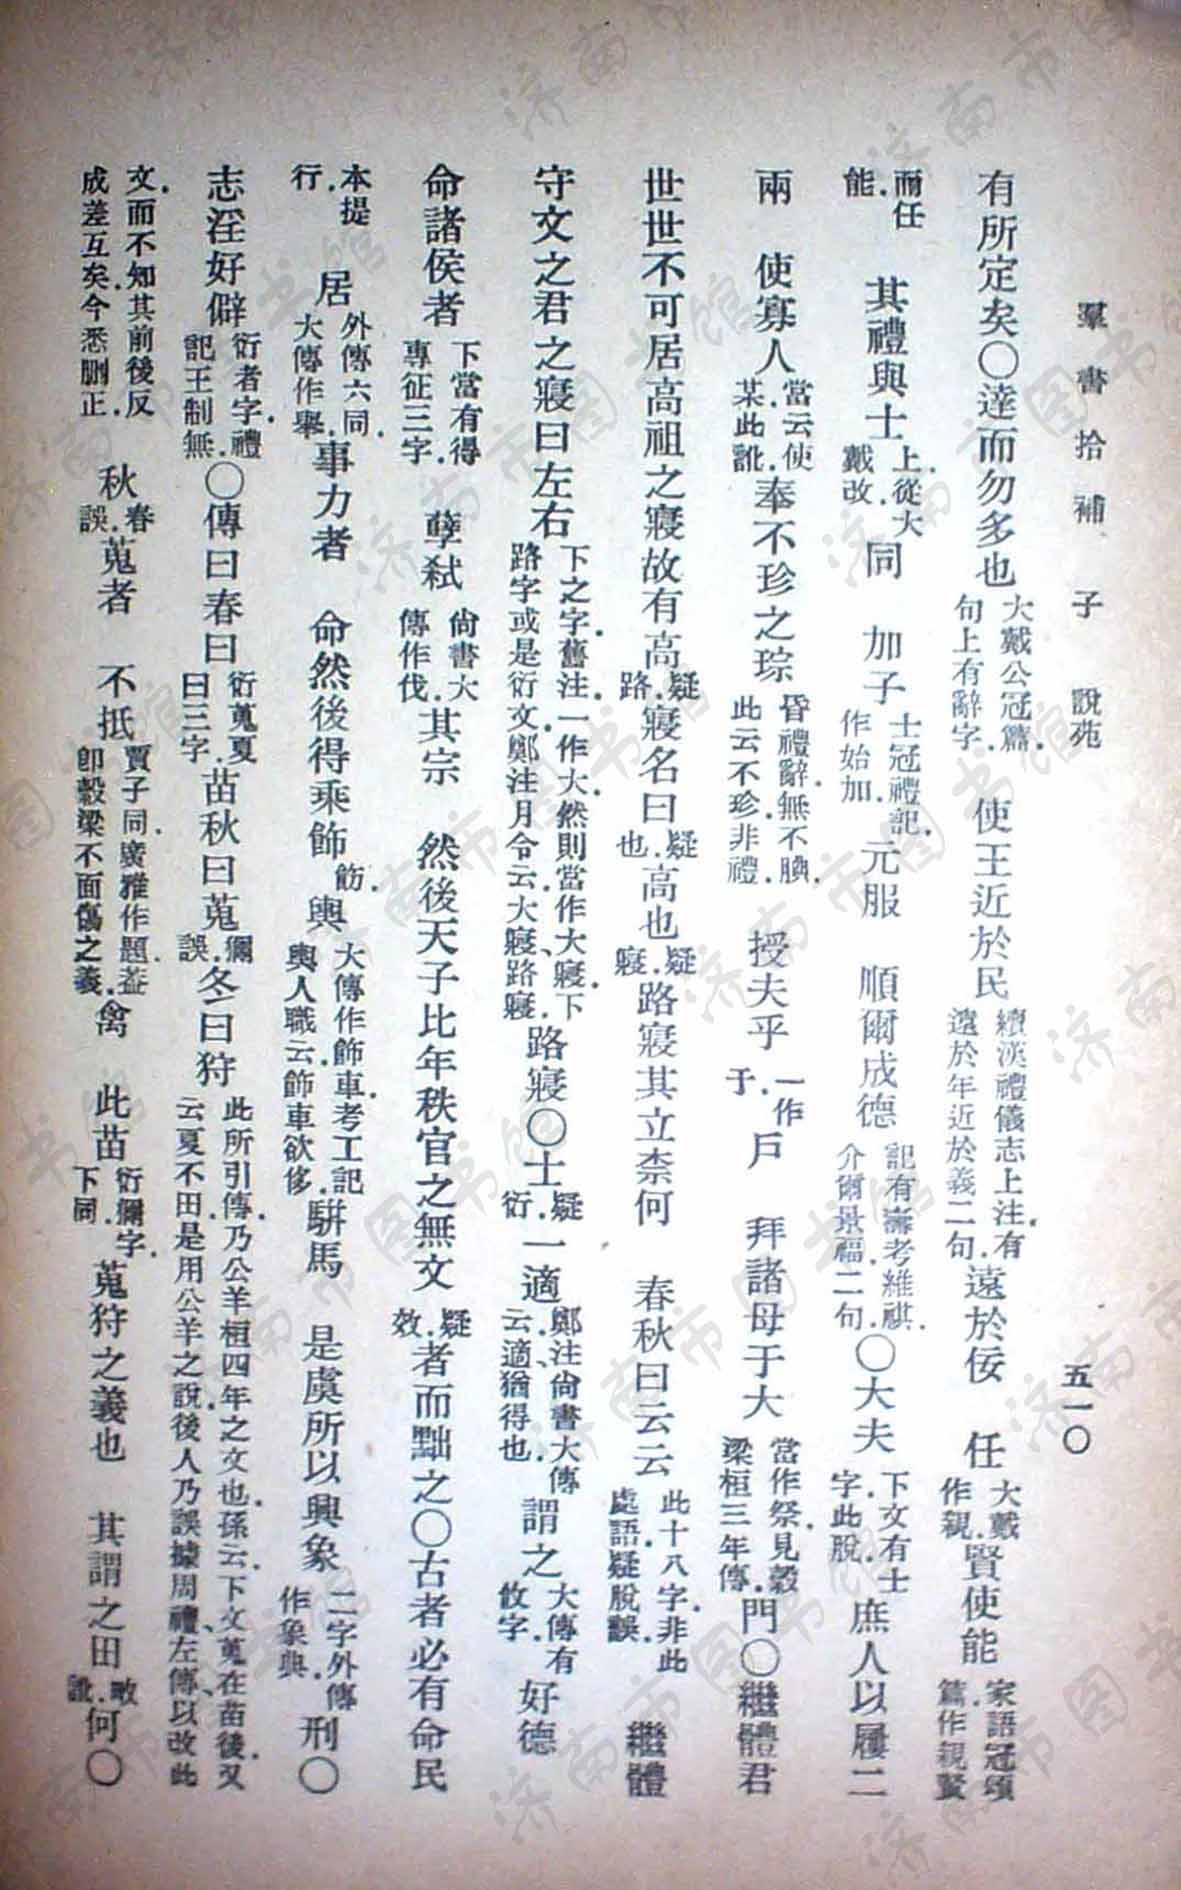 羣書拾補 子 說苑 五一〇
有所定矣〇達而勿多也大戴公冠篇.句上有辭字. 使王近於民續漢禮儀志上注.有遠於年近於義二句.遠於佞 任大戴作親.賢使能家語冠頌篇.作親賢
而任能. 其禮與士上.從大戴改. 同 加子士冠禮記.作始加. 元服 順爾成德記有壽考維祺.介爾景福二句.〇大夫下文有士字.此脫. 庶人以屨二
兩 使寡人當云使某.此訛.奉不珍之琮昏禮辭.無不腆.此云不珍.非禮. 授夫乎一作于.戶 拜諸母于大當作祭.見穀梁桓三年傳.門〇繼體君
世世不可居高祖之寢故有高疑路.寢名曰疑也.高也疑寢.路寢其立柰何 春秋曰云云此十八字.非此處語.疑脫誤. 繼體
守文之君之寢曰左右下之字.舊注.一作大.然則當作大寢.下路字或是衍文.鄭注月令云.大寢、路寢.路寢〇士疑衍.一適鄭注尚書大傳云.適、猶得也. 謂之大傳有攸字. 好德
命諸侯者下當有得專征三字. 孽弒尚書大傳作伐.其宗 然後天子比年秩官之無文疑效.者而黜之〇古者必有命民
本提行. 居外傳六同.大傳作舉.事力者 命然後得乘飾飭.輿大傳作飾車.考工記輿人職云.飾車欲侈.駢馬 是虞所以興象二字.外傳作象典.刑〇
志淫好僻衍者字.禮記王制無.〇傳曰春曰衍蒐夏曰三字.苗秋曰蒐獮誤.冬曰狩此所引傳.乃公羊桓四年之文也.孫云.下文蒐在苗後.又云夏不田.是用公羊之說.後人乃誤據周禮、左傳、以改此
文.而不知其前後反成差互矣.今悉刪正. 秋春誤.蒐者 不抵賈子同.廣雅作題.葢卽穀梁不面傷之義.禽 此苗衍獮字.下同. 蒐狩之義也 其謂之田畋訛.何〇